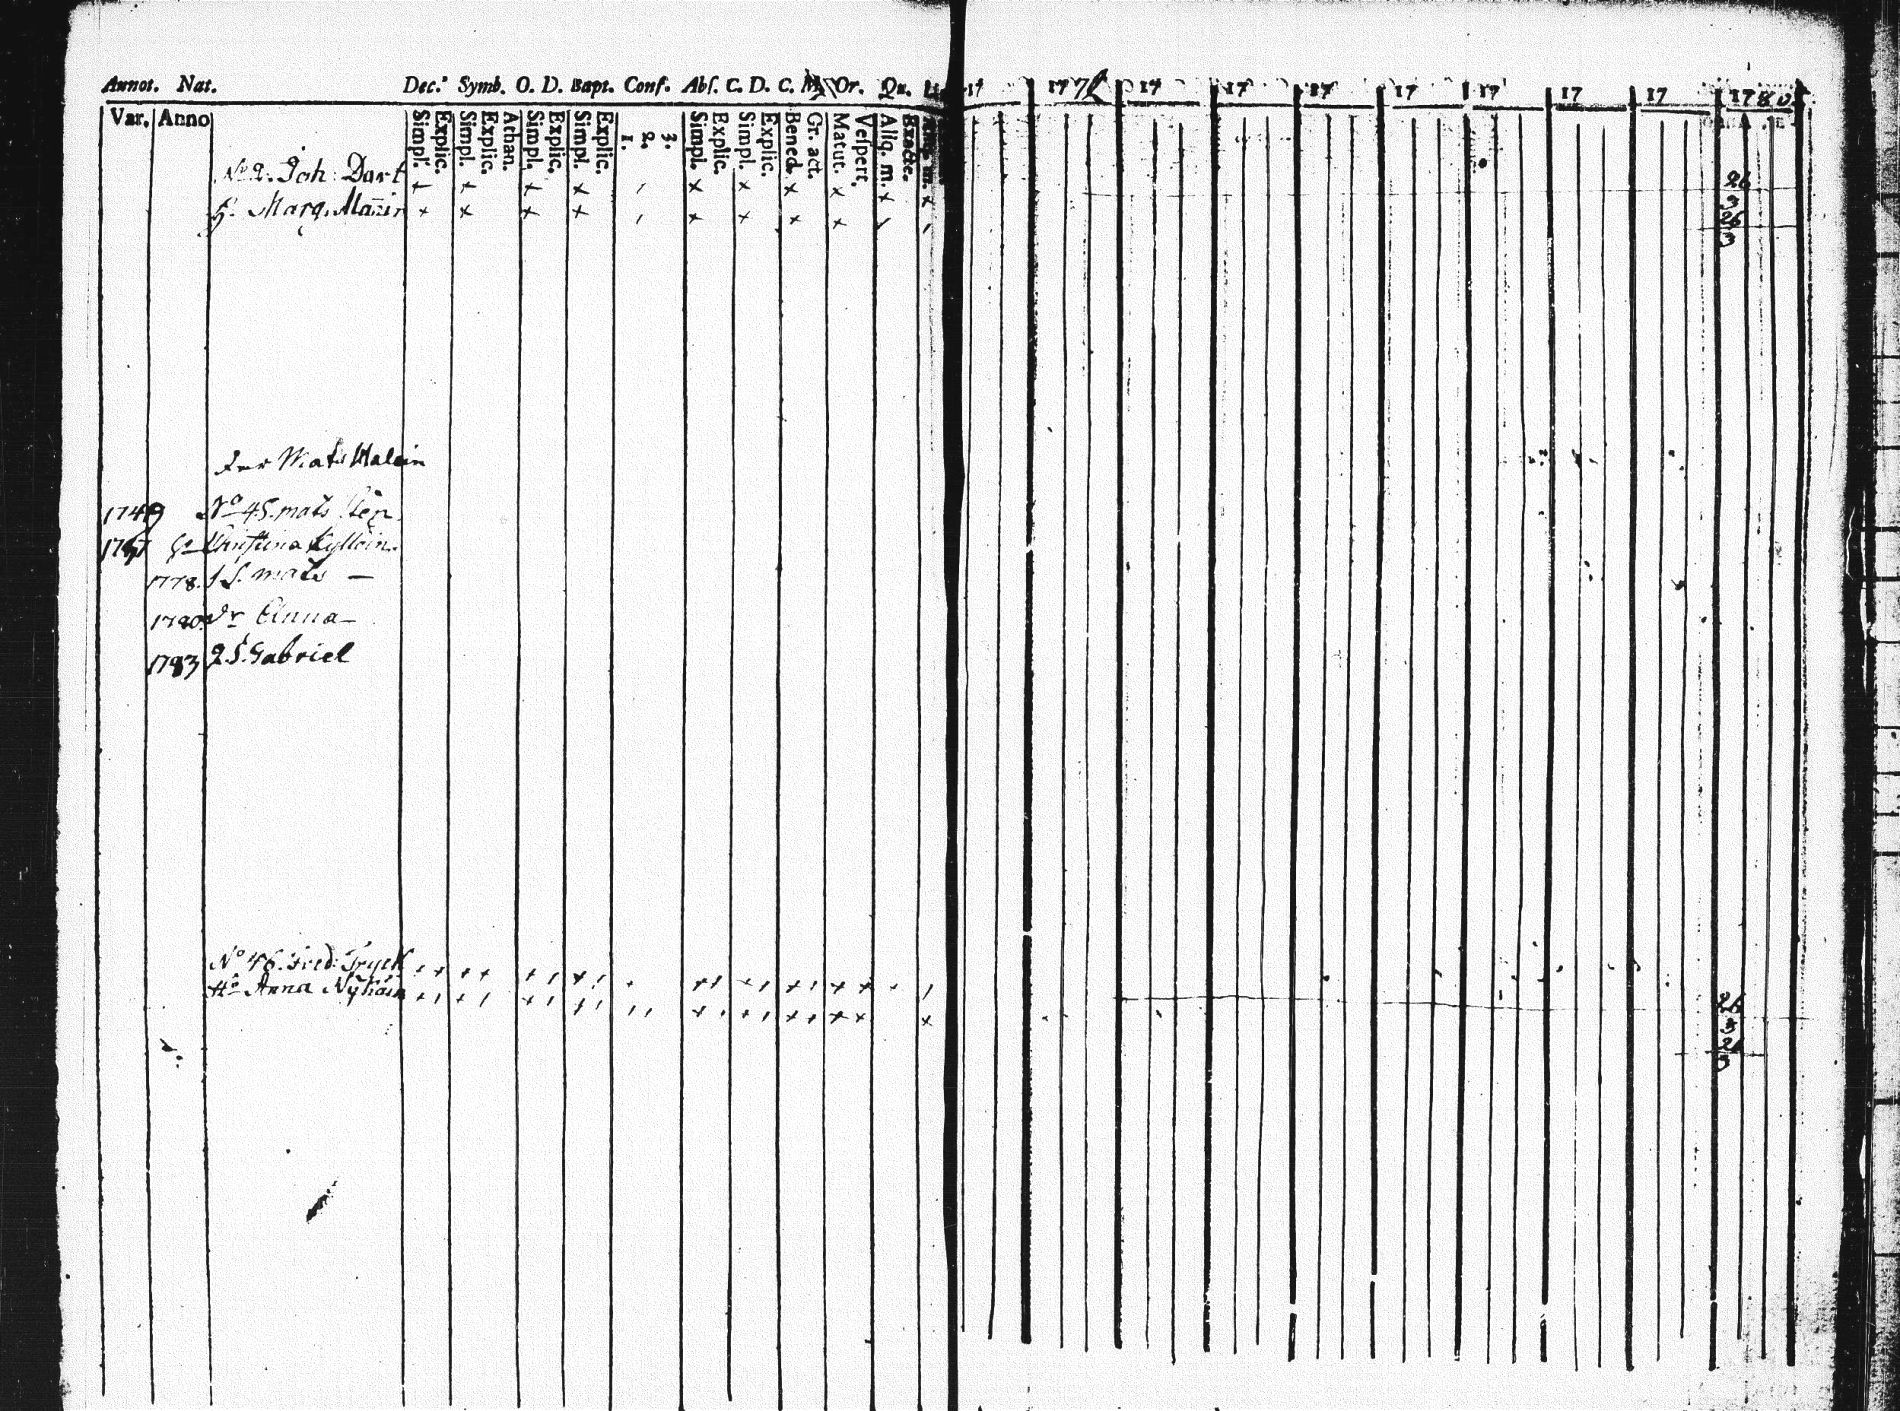 Annot. Nat. Dec. Symb. O. D. Bapt. Conf. Abs. C. D. C. M. Or. Qu. 17 177 17 17 17 17 17 17 17 1780
Var. Anno Simpl. Explic. Simpl. Explic. Athan. Simpl. Explic. Simpl. Explic. 1. 2. 3. Simpl. Explic. Simpl. Explic. Bened. Gr. act. Matut. Vespert. Aliq. m. Exacte.
No 2. Joh: Dart + + + + , x x x x x x 26
3
H. Marg. Mañin + + + + , x x x x , , 26
3
Mats Malein
1749 No 45. mats
1757 Christina Kyllein.
1778. 1 S. mats —
1780. Dr Anna —
1783 2. S. Gabriel
No 46. Fred: Tryck 26
3
H: Anna Nyhain 26
3